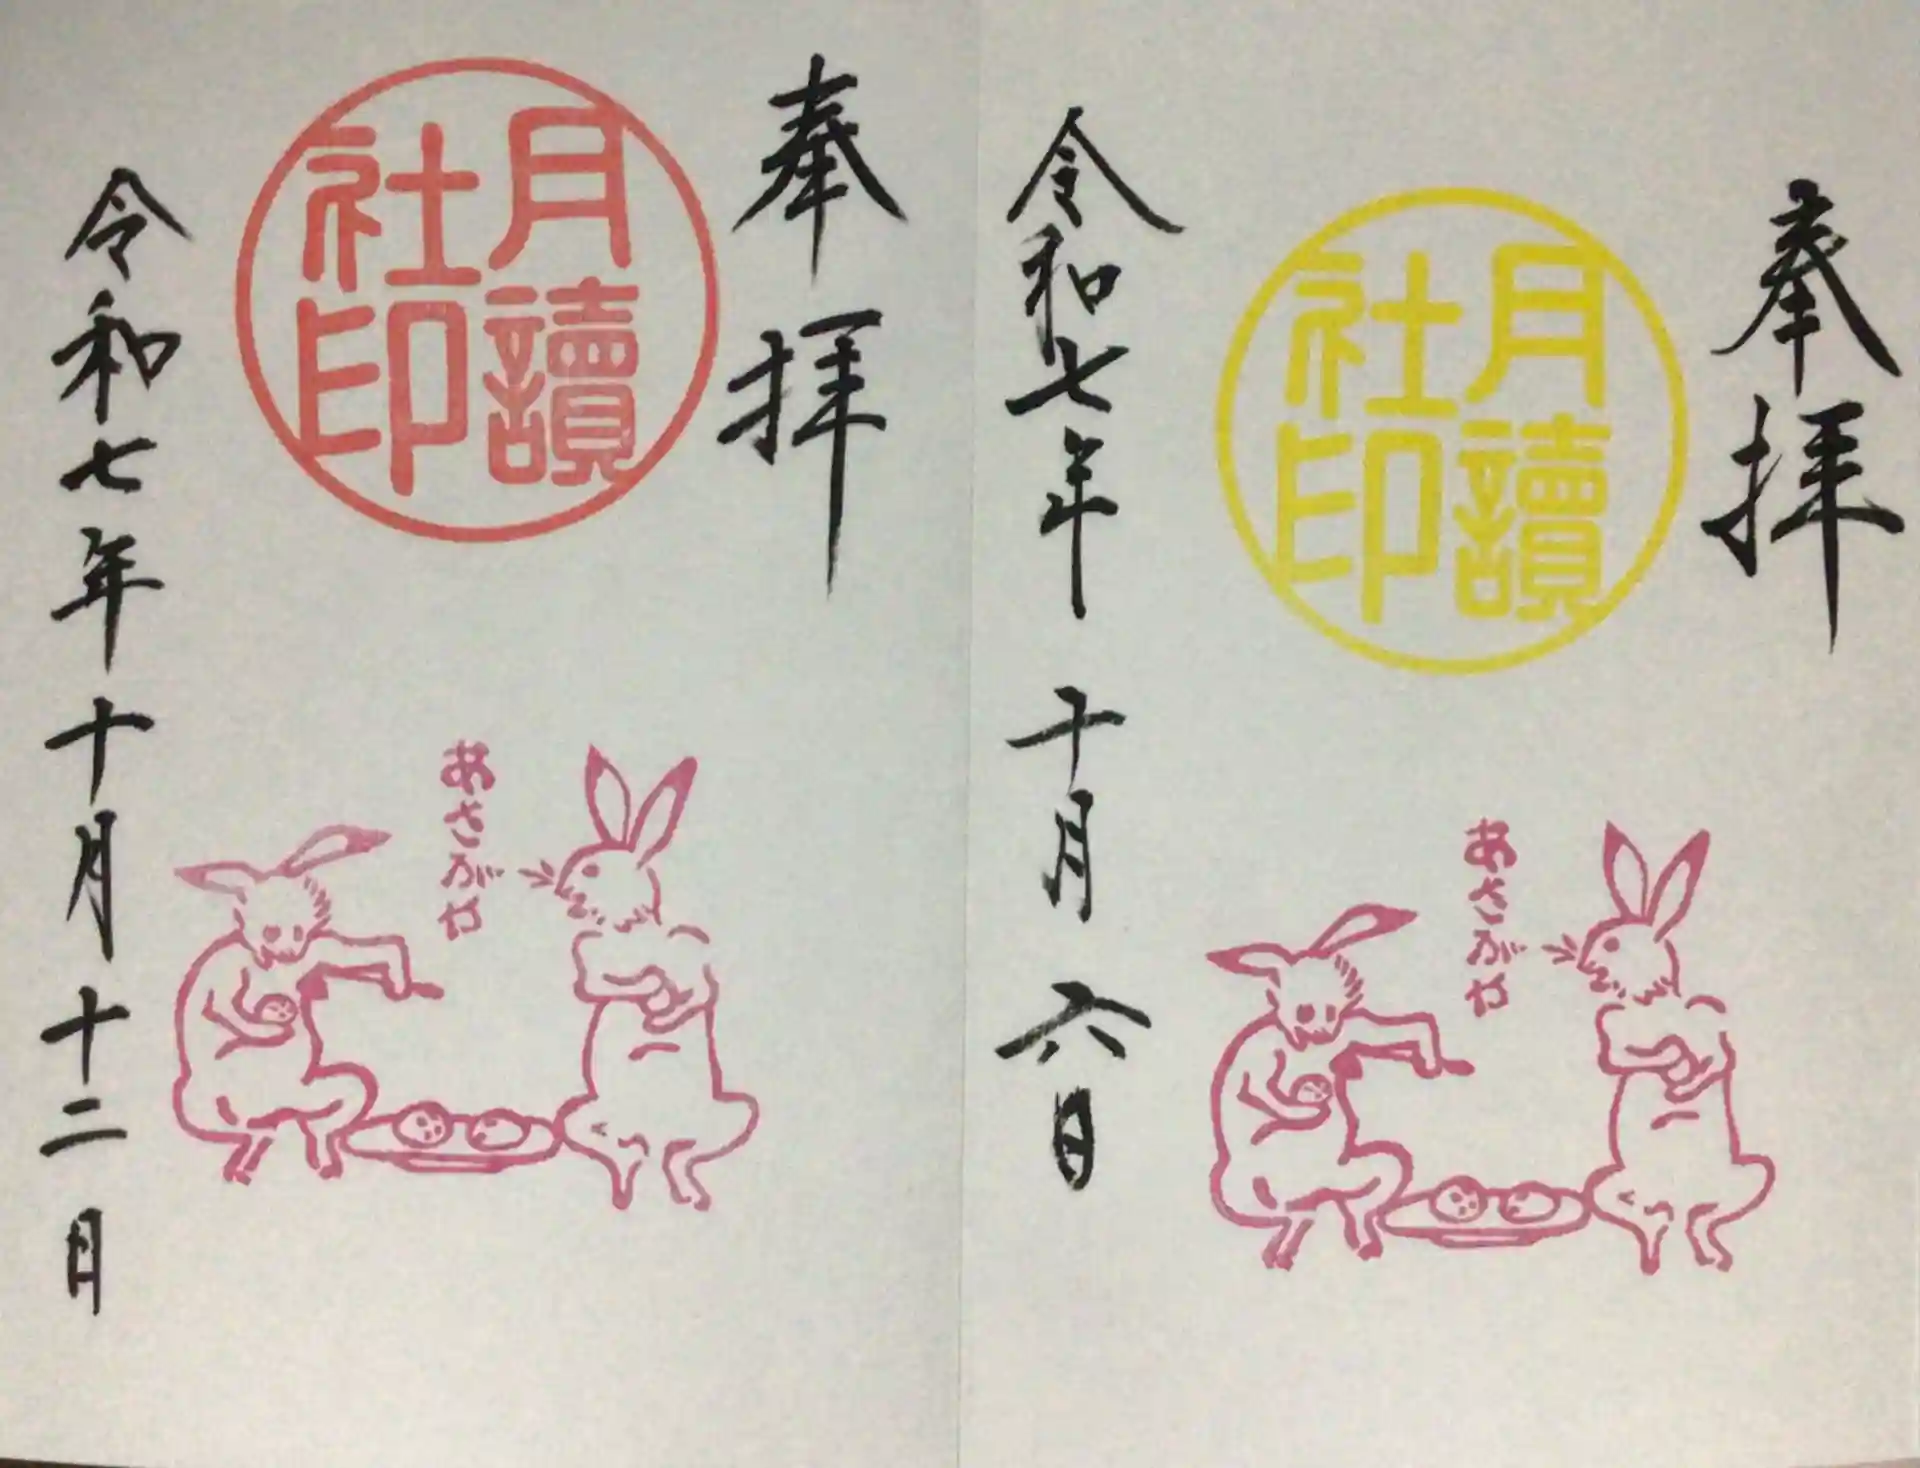 奉拝
月讀
社印
令和七年 十月 六日
あさがほ
奉拝
月讀
社印
令和七年十月十二日
あさがほ